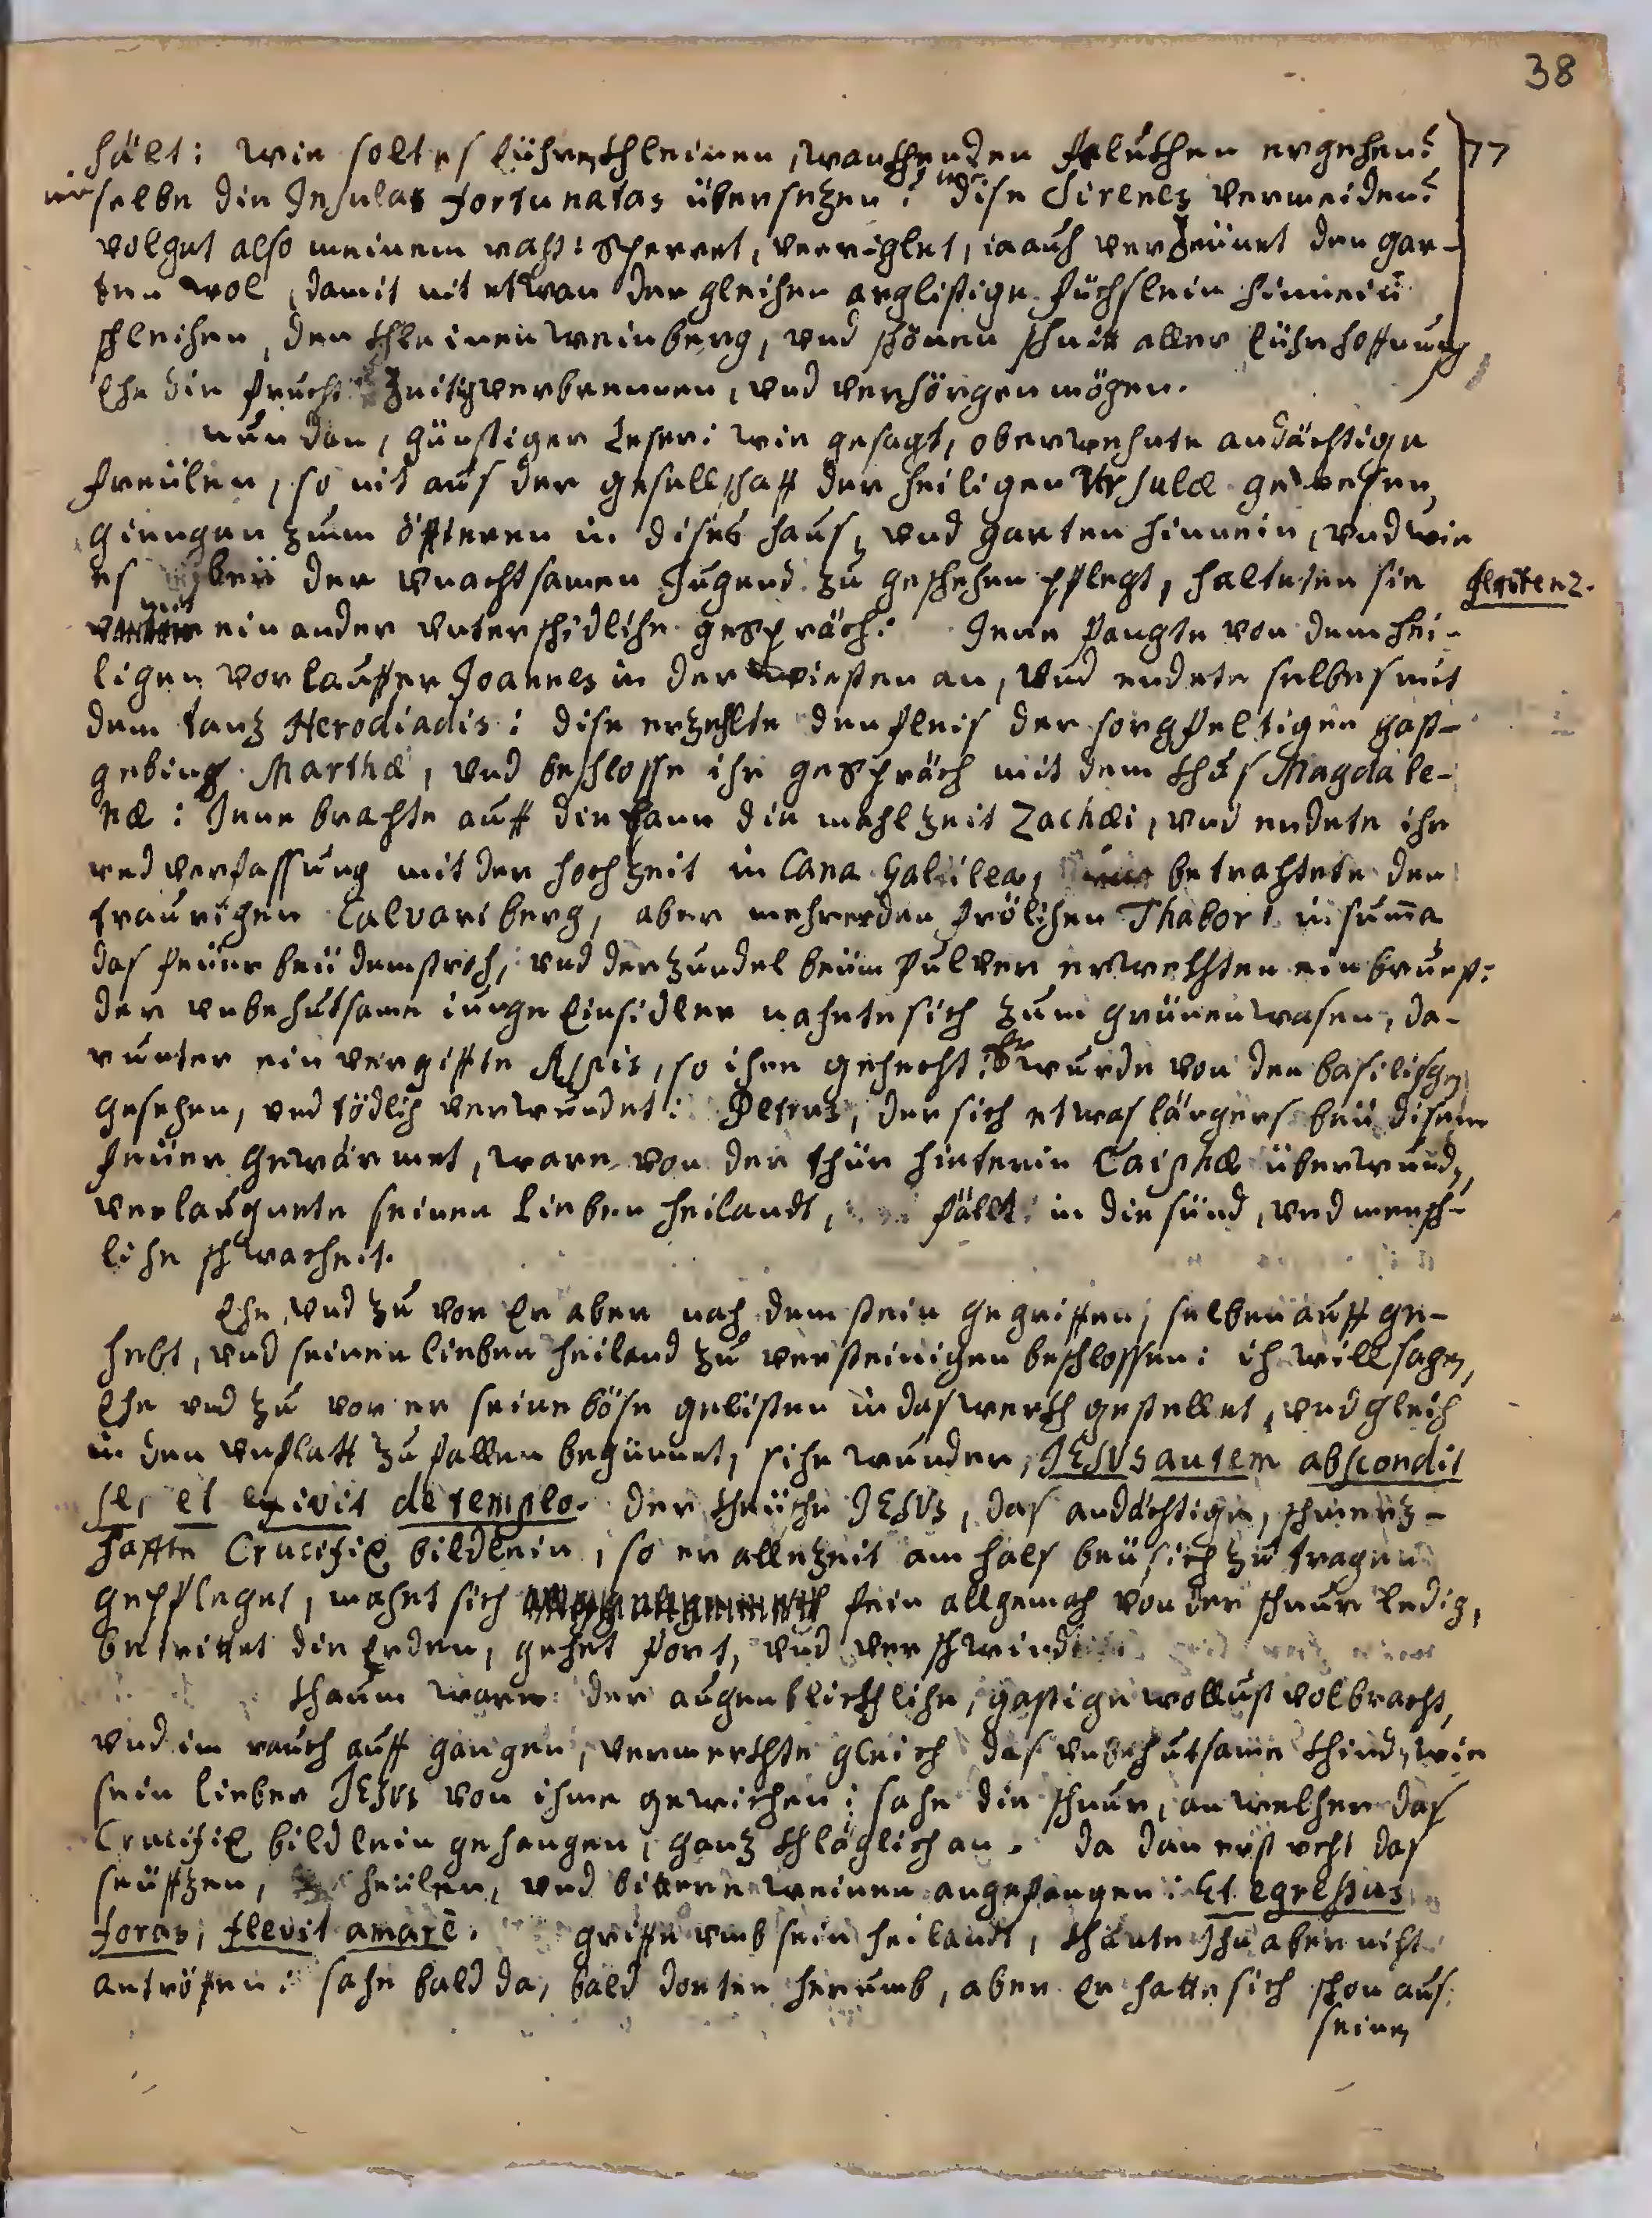 38
hält: wie solt es eühren khleinen, wankhenden felükhen ergehen? 77
wie selbe die Insulas fortunatas übersetzen? wie dise Sirenes vermeiden?
volget also meinem raht: sperret, verriglet, ia auch verzeünet den gar-
ten wol, damit nit etwan der gleichen arglistige füchslein hinnein
schleichen, den khleinen weinberg, und schönen schnitt aller eühr hoffnung
Ehe die frucht zeitig verbrennen, und verhörgen mögen.
nun dan, günstiger Leser: wie gesagt, oberwehnte andächtige
freülen, so nit aus der gesellschafft der heiligen Ursulæ gewesen,
giengen zum öffteren in dises haus, und garten hinnein, und wie
es beÿ der unachtsamen Jugend zu geschehen pflegt, halteten sie fleitenz.
mit einander unterschidliche gespräch: Jene fangte von dem hei-
ligen vorlauffer Joannes in der wiesten an, und endete selbes mit
dem tanz Herodiadis: dise erzehlte den fleis der sorgfeltigen gast-
gebing Marthæ, und beschlosse ihr gespräch mit dem khus Magdale-
næ: Jene brachte auff die bann die mahlzeit Zachæi, und endete ihr
redverfassung mit der hochzeit in Cana Galilea, betrachtete den
traurigen Calvariberg, aber mehrer den frölichen Thabor: in suma
das feüer beÿ dem stroh, und der zundel beÿm pulver erwekhten ein brunst:
der unbehutsame iunge Einsidler nahete sich zum grünen wasen, da-
runter ein vergiffte Aspis, so ihn gehecht: Er wurde von den basilisgen
gesehen, und tödlich verwundet: Petrus, der sich etwas längers beÿ disem
feüer gewärmet, ware von der thür hieterin Caiphæ überwund,
verlaugnete seinen lieben heilandt, fällt in die sünd, und mensch-
liche schwacheit.
Ehe, und zu vor Er aber nach dem stein gegriffen, selben auff ge-
hebt, und seinen lieben heiland zu versteinigen beschlossen: ich will sagen,
Ehe und zu vor er seine böse gelisten in das werkh gestellet, und gleich
in den unflatt zu fallen begünnet, sihe wunder, JESUS autem abscondit
se, et exivit de templo. der kheüsche JESUS, das andächtige, schmertz-
haffte Crucifix bildlein, so er allezeit am hals beÿ sich zu tragen
gepfleget, machet sich fein allgemach von der schnur ledig,
betrittet die Erden, gehet fort, und verschwindet
khaum ware der augenblickhliche, gastige wollust volbracht,
und im rauch auff gangen, vermerkhte gleich das unbehutsame khind, wie
sein lieber JESUS von ihme gewichen: sahe die schnur, an welcher das
Crucifix bildlein gehangen, ganz khläglich an. da dan erst recht das
seüffzen, heülen, und bittere weinen angefangen: Et egressus
foras, flevit amarè. griffe umb sein heilandt, khünte Ihn aber nicht
antröffen: sahe bald da, bald dorten herumb, aber Er hatte sich schon aus
seinen